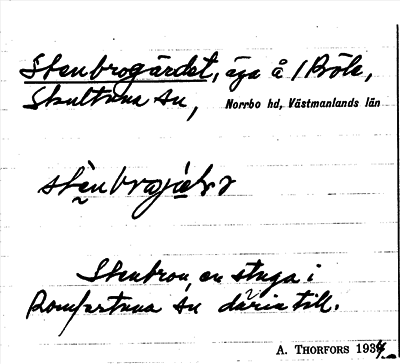 Stenbrogärdet, äga å 1 Bröle,
Skultuna sn, Norrbo hd, Västmanlands län
Stenbron, en stuga i
Romfartuna sn därintill.
A. THORFORS 1934.